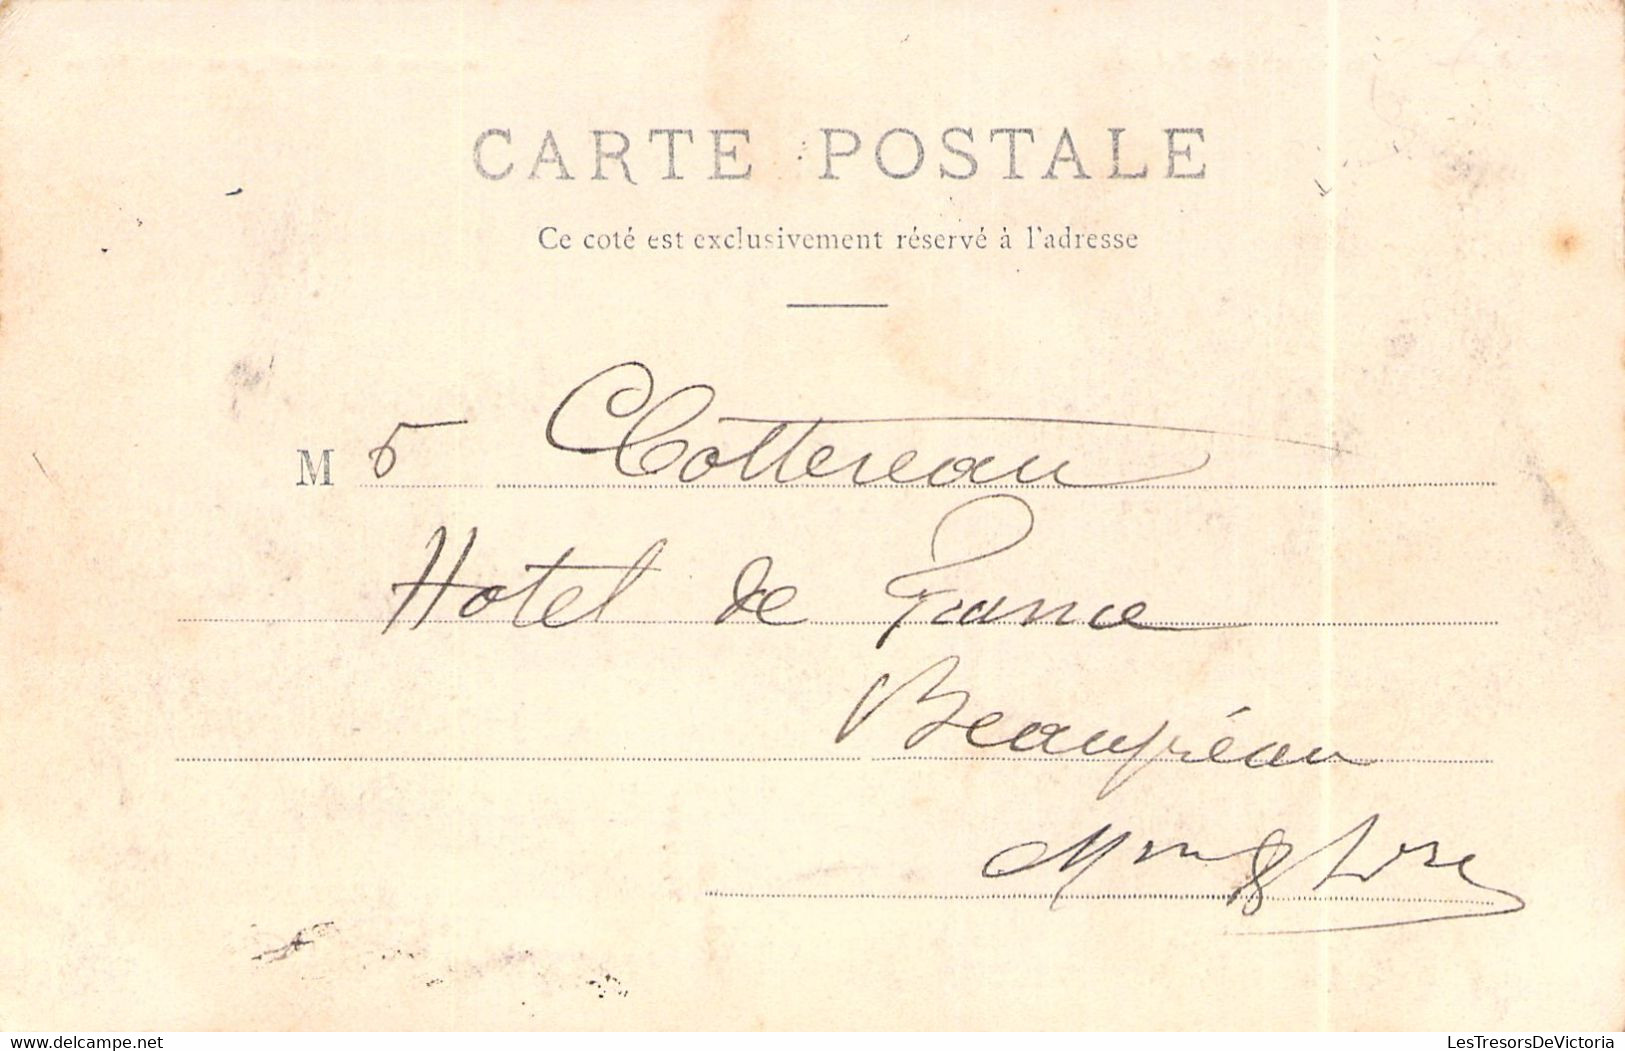 CARTE POSTALE
Ce coté est exclusivement réservé à l'adresse
M r Clottereau
Hotel de France
Beaupréau
Maine & Loire
www.delcampe.net
LesTresorsDeVictoria